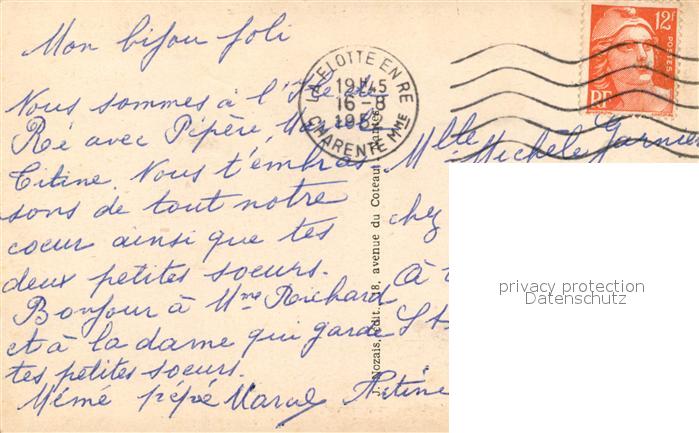 Mon bijou joli
Nous sommes à l'Ile de
Ré avec Pépère,
Titine. Nous t'embras
sons de tout notre
coeur ainsi que tes
deux petites soeurs.
Bonjour à Mme Richard
et à la dame qui garde
tes petites soeurs.
Mémé pépé Marcel Titine
LA FLOTTE EN RE
19H45
16-8
CHARENTE Mme
12F
POSTES
RF
Mlle Michèle Garnier
chez
à
St
Nozais, édit. 18, avenue du Coteau
privacy protection
Datenschutz